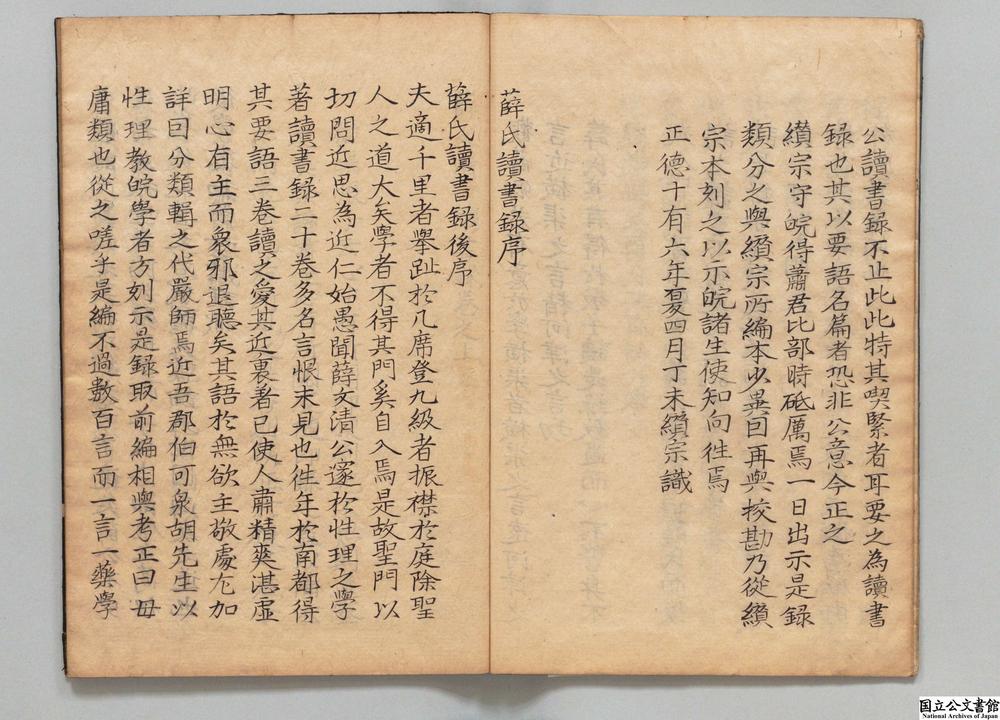 公讀書録不止此此特其喫緊者耳要之為讀書
録也其以要語名篇者恐非公意今正之
纘宗守皖得蕭君比部時砥厲焉一日出示是録
類分之與纘宗所編本少異回再與挍勘乃從纘
宗本刻之以示皖諸生使知向徃焉
正德十有六年夏四月丁未纘宗識
薛氏讀書録序
薛氏讀書録後序
夫適千里者舉趾於几席登九級者振襟於庭除聖
人之道大矣學者不得其門奚自入焉是故聖門以
切問近思為近仁始愚聞薛文清公邃於性理之學
著讀書録二十卷多名言恨未見也徃年於南都得
其要語三卷讀之愛其近裏著已使人肅精爽湛虛
明心有主而衆邪退聽矣其語於無欲主敬處尤加
詳曰分類輯之代嚴師焉近吾郡伯可泉胡先生以
性理教皖學者方刻示是録取前編相與考正曰毋
庸類也從之嗟乎是編不過数百言而一言一藥學
国立公文書館
National Archives of Japan